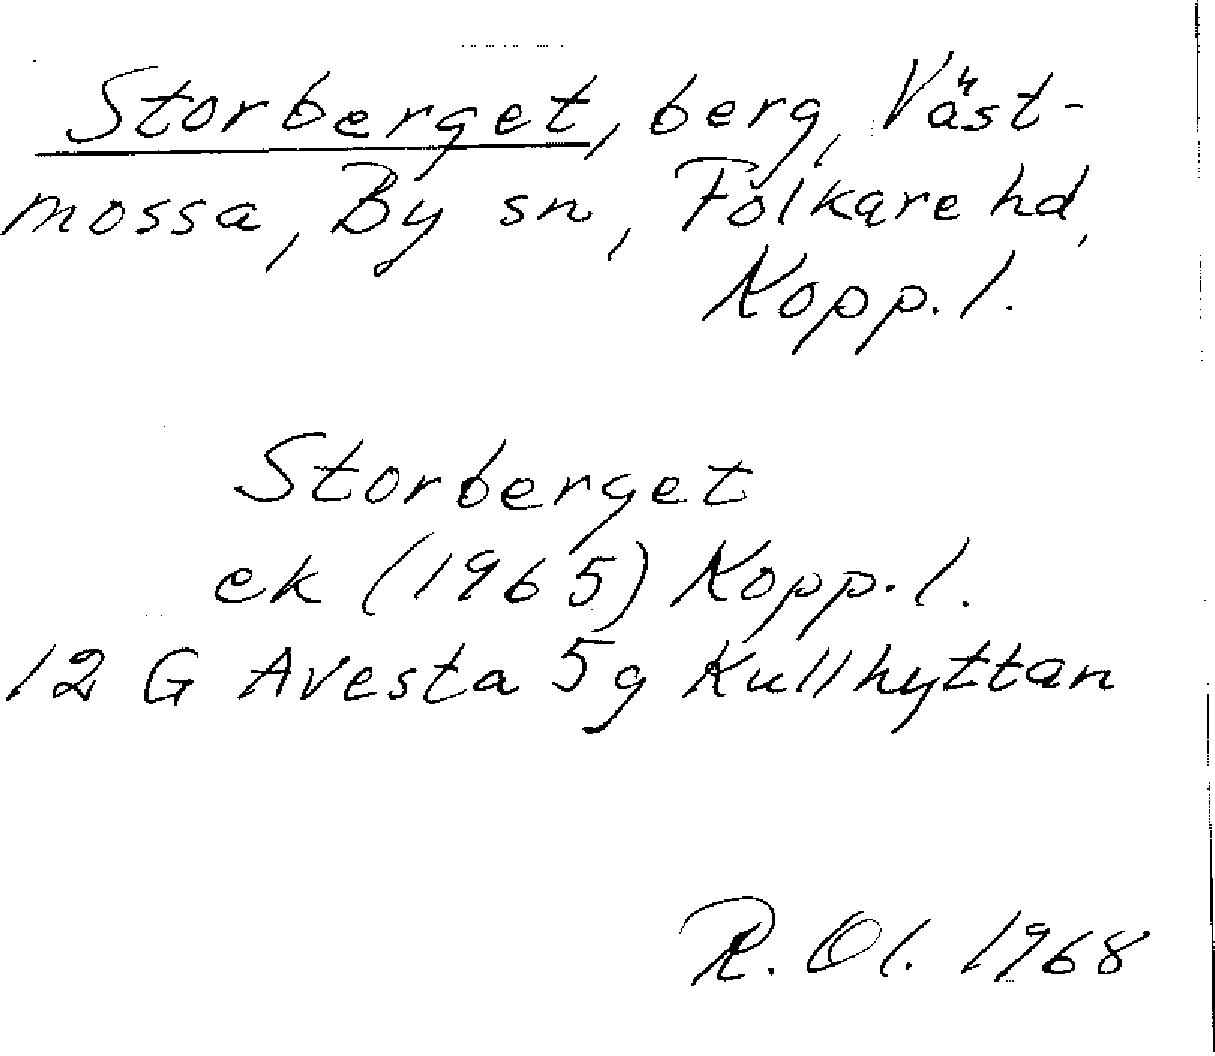 Storberget, berg, Väst-
mossa, By sn, Folkare hd,
Kopp. l.
Storberget
ek (1965) Kopp. l.
12 G Avesta 5g Kullhyttan
R. Ol. 1968